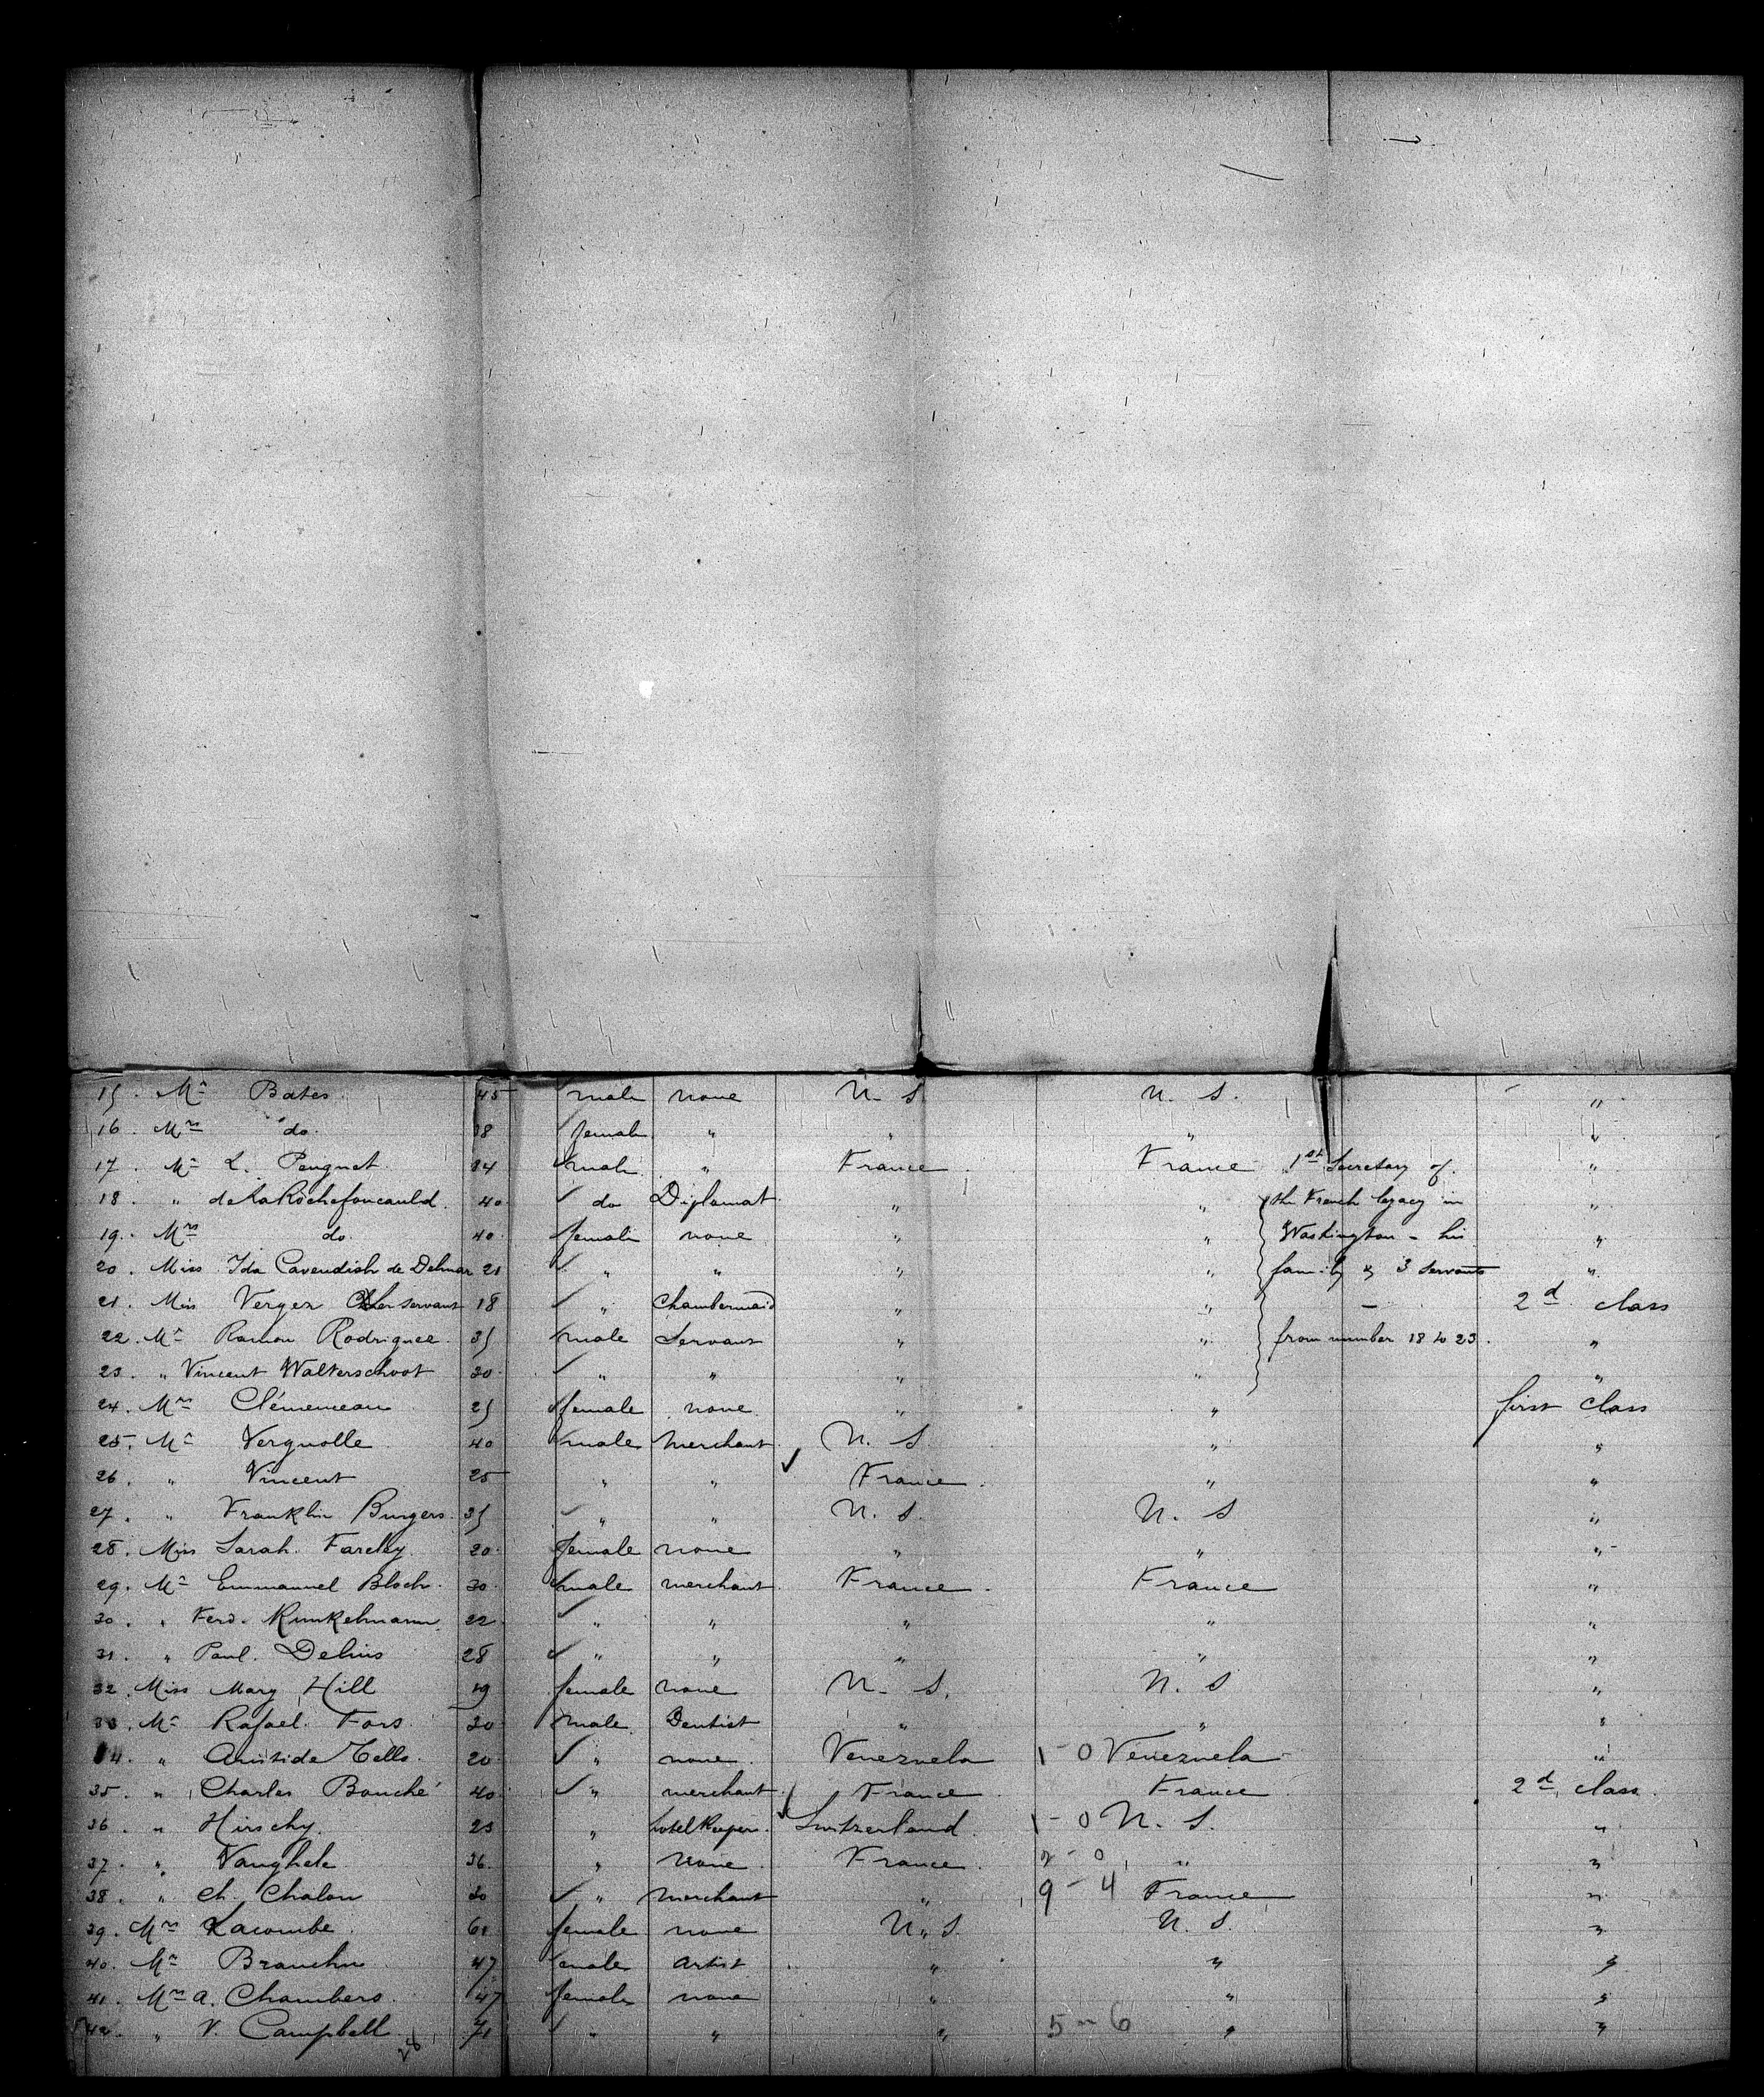 15. Mr Bates 45 male none U. S. U. S. "
16. Mrs do. 38 female " " " "
17. Mr L. Peugnet 34 male " France France 1st Secretary of "
18 " de La Rochefoucauld. 40 do Diplomat " " the French legacy in "
19. Mrs do. 40 female none " " Washington - his "
20. Miss Ida Cavendish de Delmar 21 " " " " family & 3 servants "
21. Miss Verger servant 18 " Chambermaid " " - 2d class
22. Mr Ramon Rodriguee 35 male Servant " " from number 18 to 23. "
23. " Vincent Walterschoot 30 " " " " "
24. Mrs Clémenceau 25 female none " " first class
25. Mr Vergnolle 40 male merchant U. S. " "
26. " Vincent 25 " " France. " "
27. " Franklin Burgers. 35 " " U. S. U. S "
28. Miss Sarah. Farelly. 20 female none " " "
29. Mr Emmanuel Bloch. 30 male merchant. France. France "
30. " Ferd. Kunkelmann. 22 " " " " "
31. " Paul. Delius 28 " " " " "
32. Miss Mary Hill 19 female none U. S. U. S "
33. Mr Rafael. Fors. 30 male. Dentist " " "
34. " Aristide Tello. 20 " none Venezuela 1-0 Venezuela "
35. " Charles Bouché 40 " merchant France. France 2d class.
36. " Hirschy. 25 " hotel keeper. Switzerland. 1-0 U. S. "
37. " Vanghele 36. " none. France. 2-0 " "
38. " Ch. Chalon 30 " merchant " 9-4 France "
39. Mrs Lacombe. 61 female none U. S. U. S. "
40. Mr 47 male artist " " "
41. Mrs A. Chambers. 47 female none " " "
42. " V. Campbell 71 " " " 5-6 " "
28